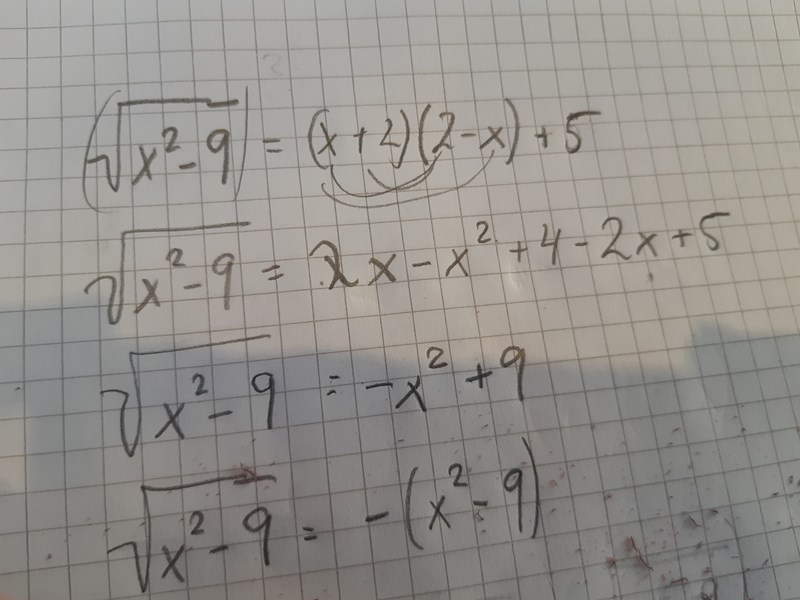 (√x²-9) = (x+2)(2-x)+5
√x²-9 = 2x-x²+4-2x+5
√x²-9 = -x²+9
√x²-9 = -(x²-9)